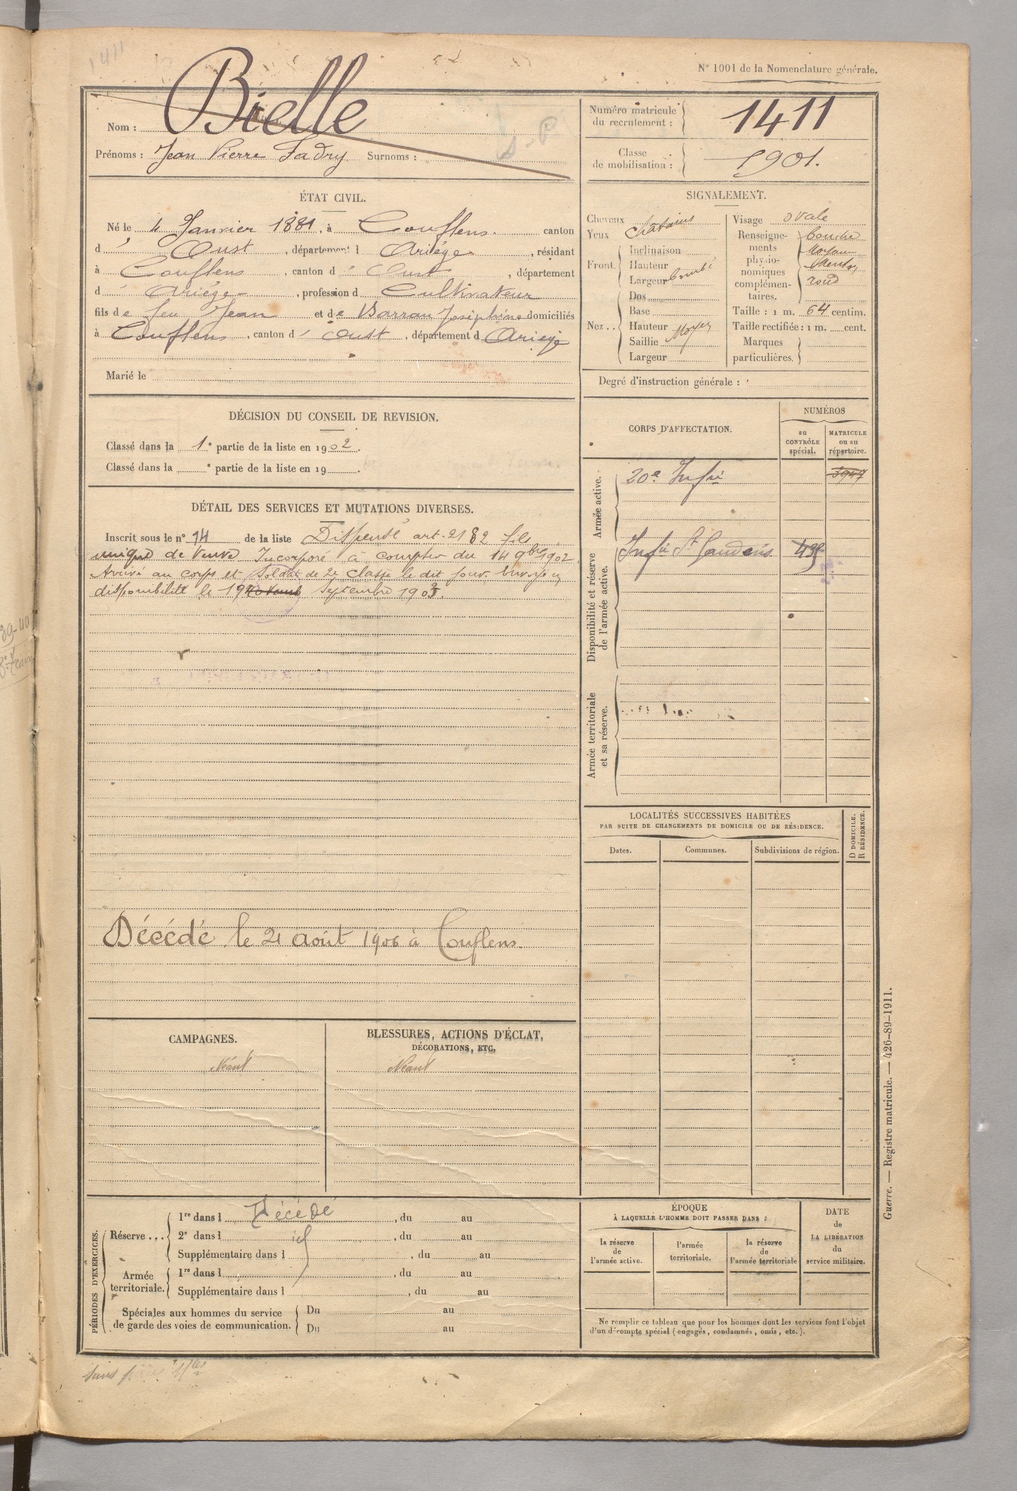 N° 1001 de la Nomenclature générale.
1411
Nom : Bielle
Prénoms : Jean Pierre Fadry Surnoms :
Numéro matricule du recrutement : 1411
Classe de mobilisation : 1901.
ÉTAT CIVIL.
Né le 4 Janvier 1881, à Couflens. canton
d' Oust, département d Ariège, résidant
à Couflens, canton d' Oust, département
d' Ariège, profession d Cultivateur
fils de feu Jean et de Barran Joséphine domiciliés
à Couflens, canton d' Oust, département d Ariège
Marié le
SIGNALEMENT.
Cheveux châtains
Yeux
Front. Inclinaison
Hauteur
Largeur
Nez.. Dos
Base
Hauteur Moyen
Saillie
Largeur
Visage ovale
Renseignements physionomiques complémentaires. bouche moyen menton rond
Taille : 1 m. 64 centim.
Taille rectifiée : 1 m. cent.
Marques particulières.
Degré d'instruction générale :
DÉCISION DU CONSEIL DE REVISION.
Classé dans la 1e partie de la liste en 1902.
Classé dans la e partie de la liste en 19 .
DÉTAIL DES SERVICES ET MUTATIONS DIVERSES.
Inscrit sous le n° 14 de la liste Dispensé art. 21 § 2 fils
unique de veuve Incorporé à compter du 14 9bre 1902.
Arrivé au corps et soldat de 2e classe le dit jour. Envoyé en
disponibilité le 19 Septembre 1903.
Décédé le 21 août 1906 à Couflens.
CORPS D'AFFECTATION.
NUMÉROS
au CONTRÔLE spécial.
MATRICULE ou au répertoire.
Armée active.
20e Infie 3947
Disponibilité et réserve de l'armée active.
Infie St Gaudens
Armée territoriale et sa réserve.
LOCALITÉS SUCCESSIVES HABITÉES
PAR SUITE DE CHANGEMENTS DE DOMICILE OU DE RÉSIDENCE.
Dates. Communes. Subdivisions de région. D DOMICILE. R RÉSIDENCE.
CAMPAGNES.
Néant
BLESSURES, ACTIONS D'ÉCLAT,
DÉCORATIONS, ETC.
Néant
PÉRIODES D'EXERCICES.
Réserve... 1re dans l Décédé, du au
2e dans l, du au
Supplémentaire dans l, du au
Armée territoriale. 1re dans l, du au
Supplémentaire dans l, du au
Spéciales aux hommes du service de garde des voies de communication. Du au
Du au
ÉPOQUE
À LAQUELLE L'HOMME DOIT PASSER DANS :
la réserve de l'armée active.
l'armée territoriale.
la réserve de l'armée territoriale
DATE de LA LIBÉRATION du service militaire.
Ne remplir ce tableau que pour les hommes dont les services font l'objet
d'un décompte spécial (engagés, condamnés, omis, etc.).
Guerre. — Registre matricule. — 426-89-1911.